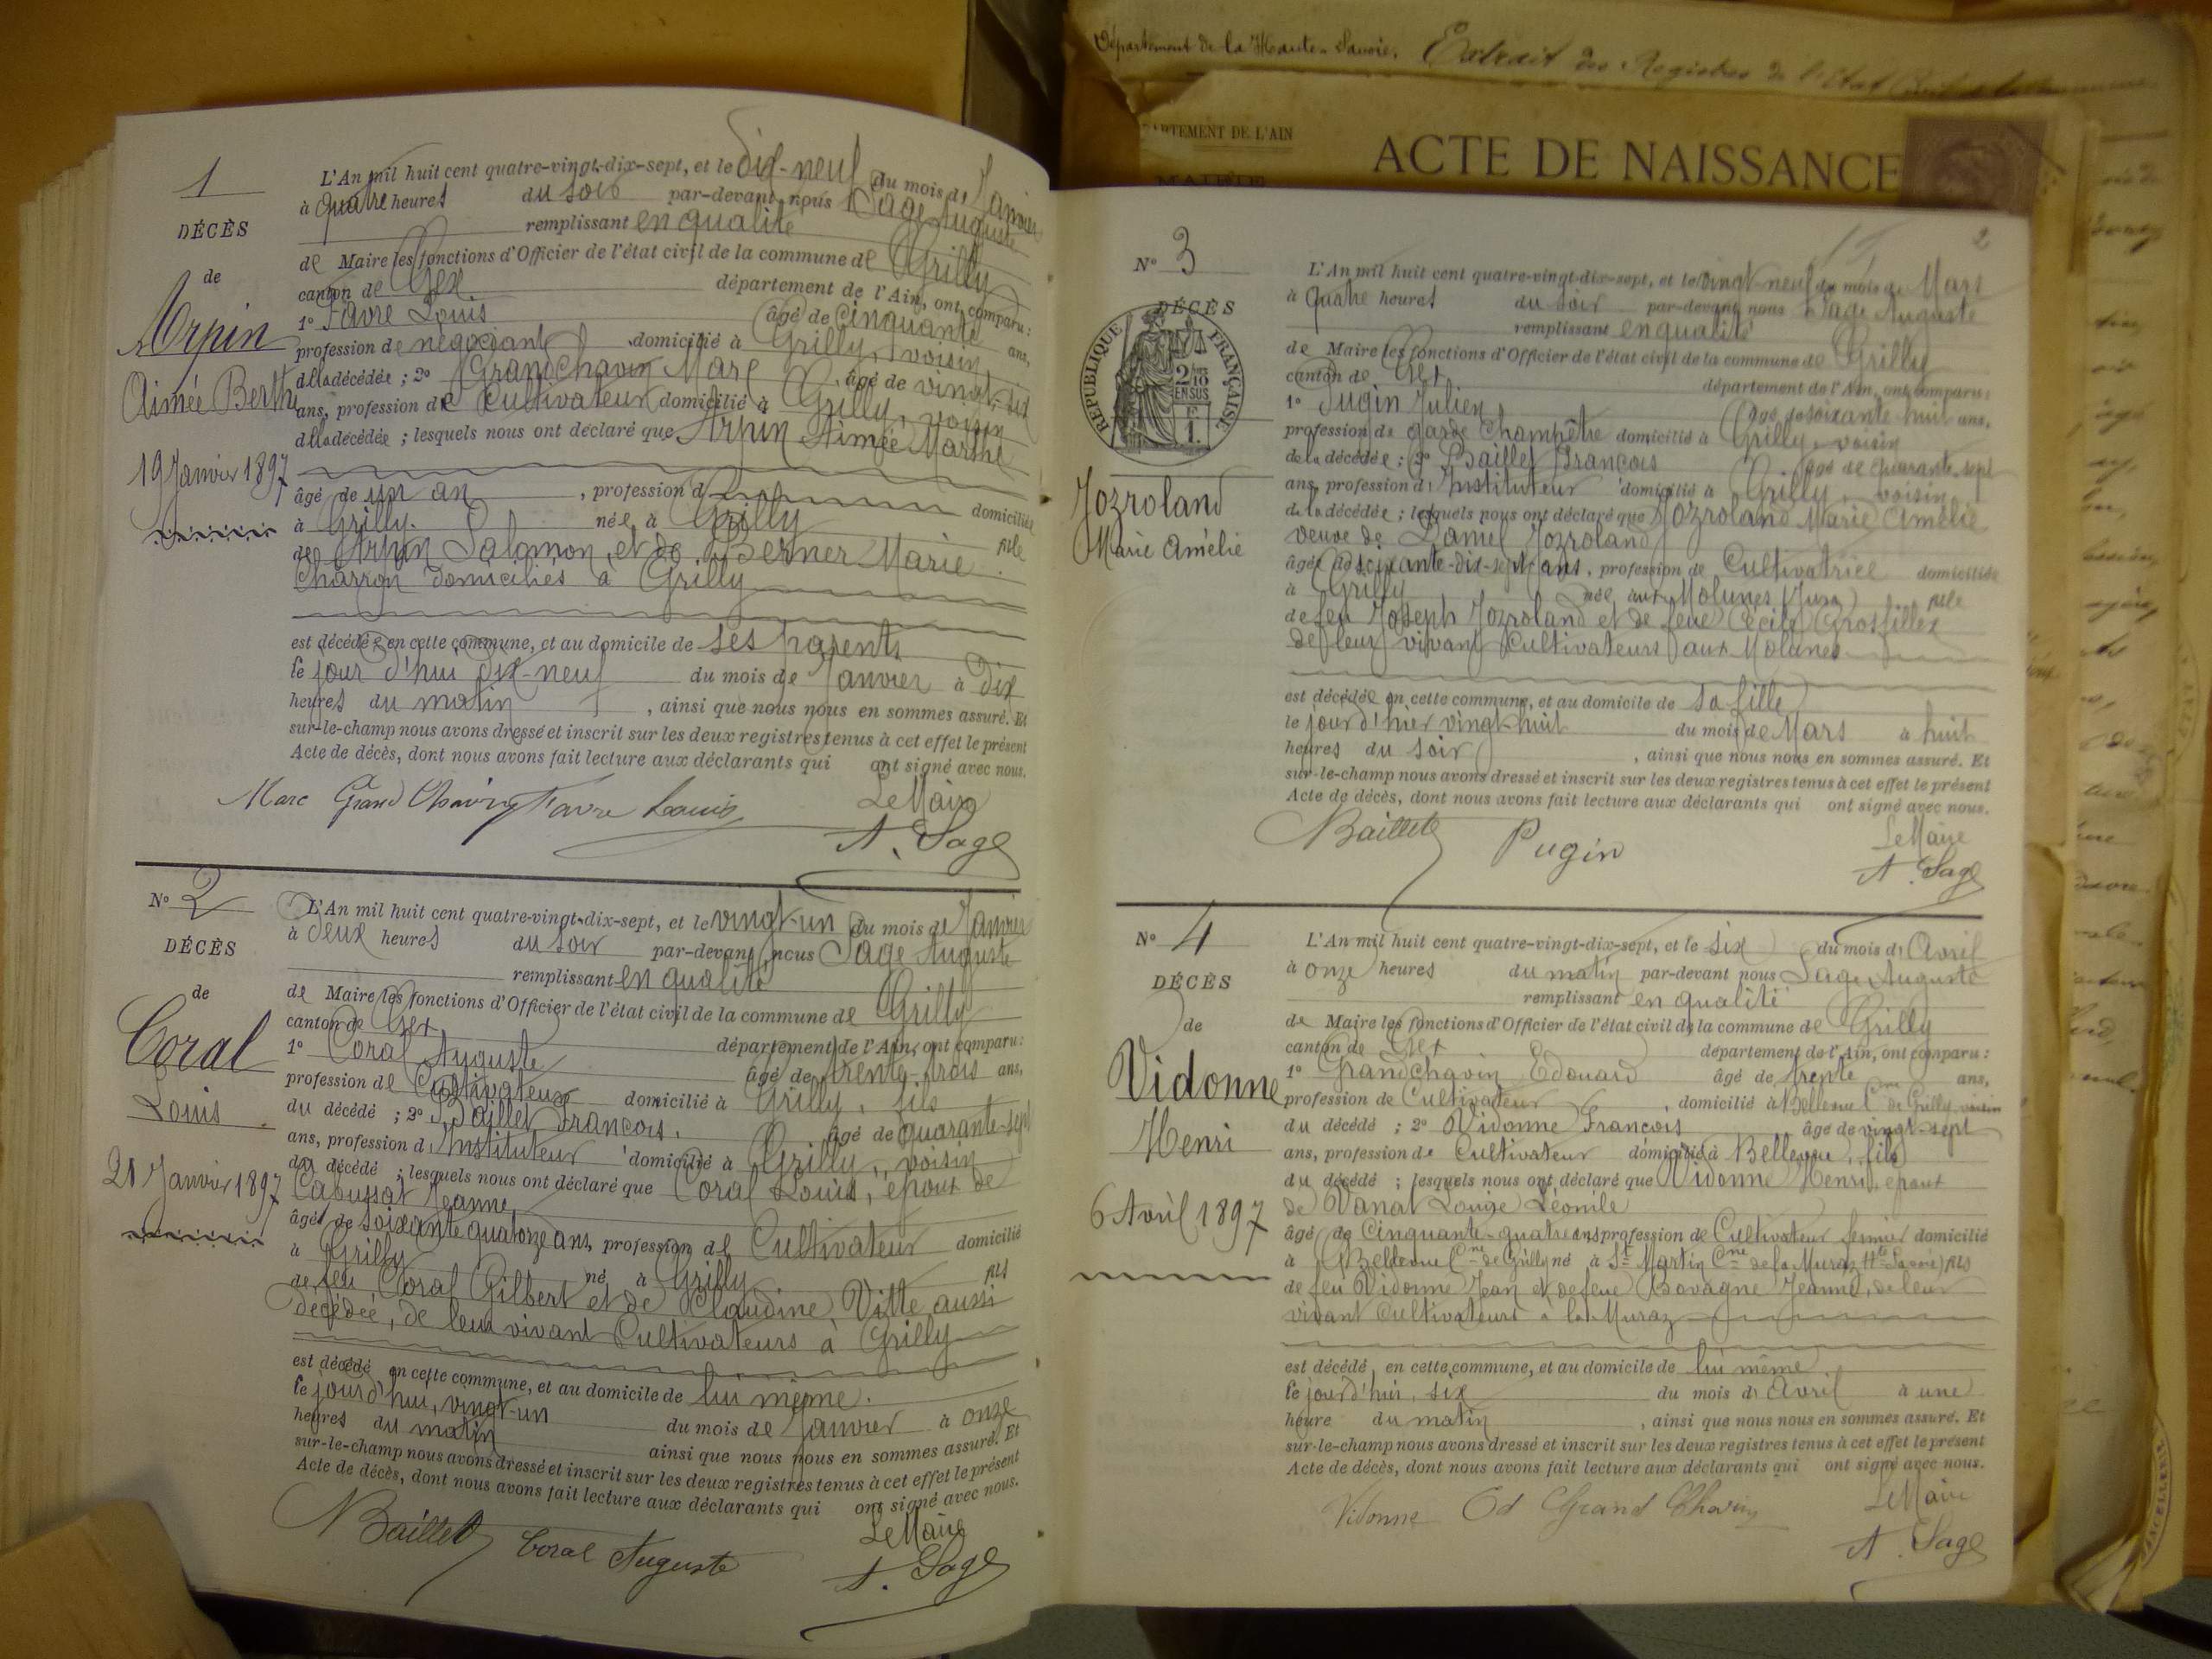 1
DÉCÈS
de
Arpin
Aimée Berthe
19 Janvier 1897
L'An mil huit cent quatre-vingt-dix-sept, et le dix-neuf du mois de Janvier
à quatre heures du soir par-devant nous Sage Auguste
remplissant en qualité
de Maire les fonctions d'Officier de l'état civil de la commune de Grilly
canton de Gex département de l'Ain, ont comparu :
1° Favre Louis âgé de cinquante ans,
profession de négociant domicilié à Grilly, voisin
de la décédée ; 2° Grandchavin Marc, âgé de vingt-six
ans, profession de Cultivateur domicilié à Grilly, voisin
de la décédée ; lesquels nous ont déclaré que Arpin Aimée Marthe
âgé de un an, profession d domiciliée
à Grilly. née à Grilly fille
de Arpin Salomon et de Berner Marie
Charron domiciliés à Grilly
est décédée en cette commune, et au domicile de ses parents
le jour d'hui dix-neuf du mois de Janvier à dix
heures du matin, ainsi que nous nous en sommes assuré. Et
sur-le-champ nous avons dressé et inscrit sur les deux registres tenus à cet effet le présent
Acte de décès, dont nous avons fait lecture aux déclarants qui ont signé avec nous.
Marc Grand Chavin Favre Louis Le Maire
A. Sage
N° 2
DÉCÈS
de
Coral
Louis
21 Janvier 1897
L'An mil huit cent quatre-vingt-dix-sept, et le vingt-un du mois de Janvier
à deux heures du soir par-devant nous Sage Auguste
remplissant en qualité
de Maire les fonctions d'Officier de l'état civil de la commune de Grilly
canton de Gex département de l'Ain, ont comparu :
1° Coral Auguste âgé de trente-trois ans,
profession de Cultivateur domicilié à Grilly, fils
du décédé ; 2° Baillet François, âgé de quarante-sept
ans, profession d'Instituteur domicilié à Grilly, voisin
du décédé ; lesquels nous ont déclaré que Coral Louis, époux de
Cabussat Jeanne
âgé de soixante quatorze ans, profession de Cultivateur domicilié
à Grilly né à Grilly fils
de feu Coral Gilbert et de Claudine Vitte aussi
décédée, de leur vivant Cultivateurs à Grilly
est décédé en cette commune, et au domicile de lui même.
le jourd'hui, vingt-un du mois de Janvier à onze
heures du matin ainsi que nous nous en sommes assuré. Et
sur-le-champ nous avons dressé et inscrit sur les deux registres tenus à cet effet le présent
Acte de décès, dont nous avons fait lecture aux déclarants qui ont signé avec nous.
Baillet Coral Auguste Le Maire
A. Sage
Département de la Haute-Savoie. Extrait des Registres de l'Etat Civil
DÉPARTEMENT DE L'AIN
ACTE DE NAISSANCE
MAIRIE
2
N° 3
DÉCÈS
RÉPUBLIQUE FRANÇAISE
2/10 EN SUS
1 F.
Jozroland
Marie Amélie
L'An mil huit cent quatre-vingt-dix-sept, et le vingt-neuf du mois de Mars
à quatre heures du soir par-devant nous Sage Auguste
remplissant en qualité
de Maire les fonctions d'Officier de l'état civil de la commune de Grilly
canton de Gex département de l'Ain, ont comparu :
1° Pugin Julien âgé de soixante huit ans,
profession de garde Champêtre domicilié à Grilly, voisin
de la décédée ; 2° Baillet François âgé de quarante-sept
ans, profession d'Instituteur domicilié à Grilly, voisin
de la décédée ; lesquels nous ont déclaré que Jozroland Marie Amélie
veuve de Daniel Jozroland
âgée de soixante-dix-sept ans, profession de Cultivatrice domiciliée
à Grilly née aux Molunes (Jura) fille
de feu Joseph Jozroland et de feue Cécile Grosfillex
de leur vivant Cultivateurs aux Molunes
est décédée en cette commune, et au domicile de sa fille
le jour d'hier vingt-huit du mois de Mars à huit
heures du soir, ainsi que nous nous en sommes assuré. Et
sur-le-champ nous avons dressé et inscrit sur les deux registres tenus à cet effet le présent
Acte de décès, dont nous avons fait lecture aux déclarants qui ont signé avec nous.
Baillet Pugin Le Maire
A. Sage
N° 4
DÉCÈS
de
Vidonne
Henri
6 Avril 1897
L'An mil huit cent quatre-vingt-dix-sept, et le six du mois d'Avril
à onze heures du matin par-devant nous Sage Auguste
remplissant en qualité
de Maire les fonctions d'Officier de l'état civil de la commune de Grilly
canton de Gex département de l'Ain, ont comparu :
1° Grandchavin Edouard âgé de trente ans,
profession de Cultivateur, domicilié à Bellevue Cne de Grilly, voisin
du décédé ; 2° Vidonne François âgé de vingt-sept
ans, profession de Cultivateur domicilié à Bellevue, fils
du décédé ; lesquels nous ont déclaré que Vidonne Henri, époux
de Vanat Louise Léonile
âgé de Cinquante-quatre ans profession de Cultivateur fermier domicilié
à Bellevue Cne de Grilly né à St Martin Cne de la Muraz Hte Savoie) fils
de feu Vidonne Jean et de feue Bovagne Jeanne, de leur
vivant Cultivateurs à la Muraz
est décédé, en cette commune, et au domicile de lui même
le jourd'hui, six du mois d'Avril à une
heure du matin, ainsi que nous nous en sommes assuré. Et
sur-le-champ nous avons dressé et inscrit sur les deux registres tenus à cet effet le présent
Acte de décès, dont nous avons fait lecture aux déclarants qui ont signé avec nous.
Vidonne Ed Grand Chavin Le Maire
A. Sage